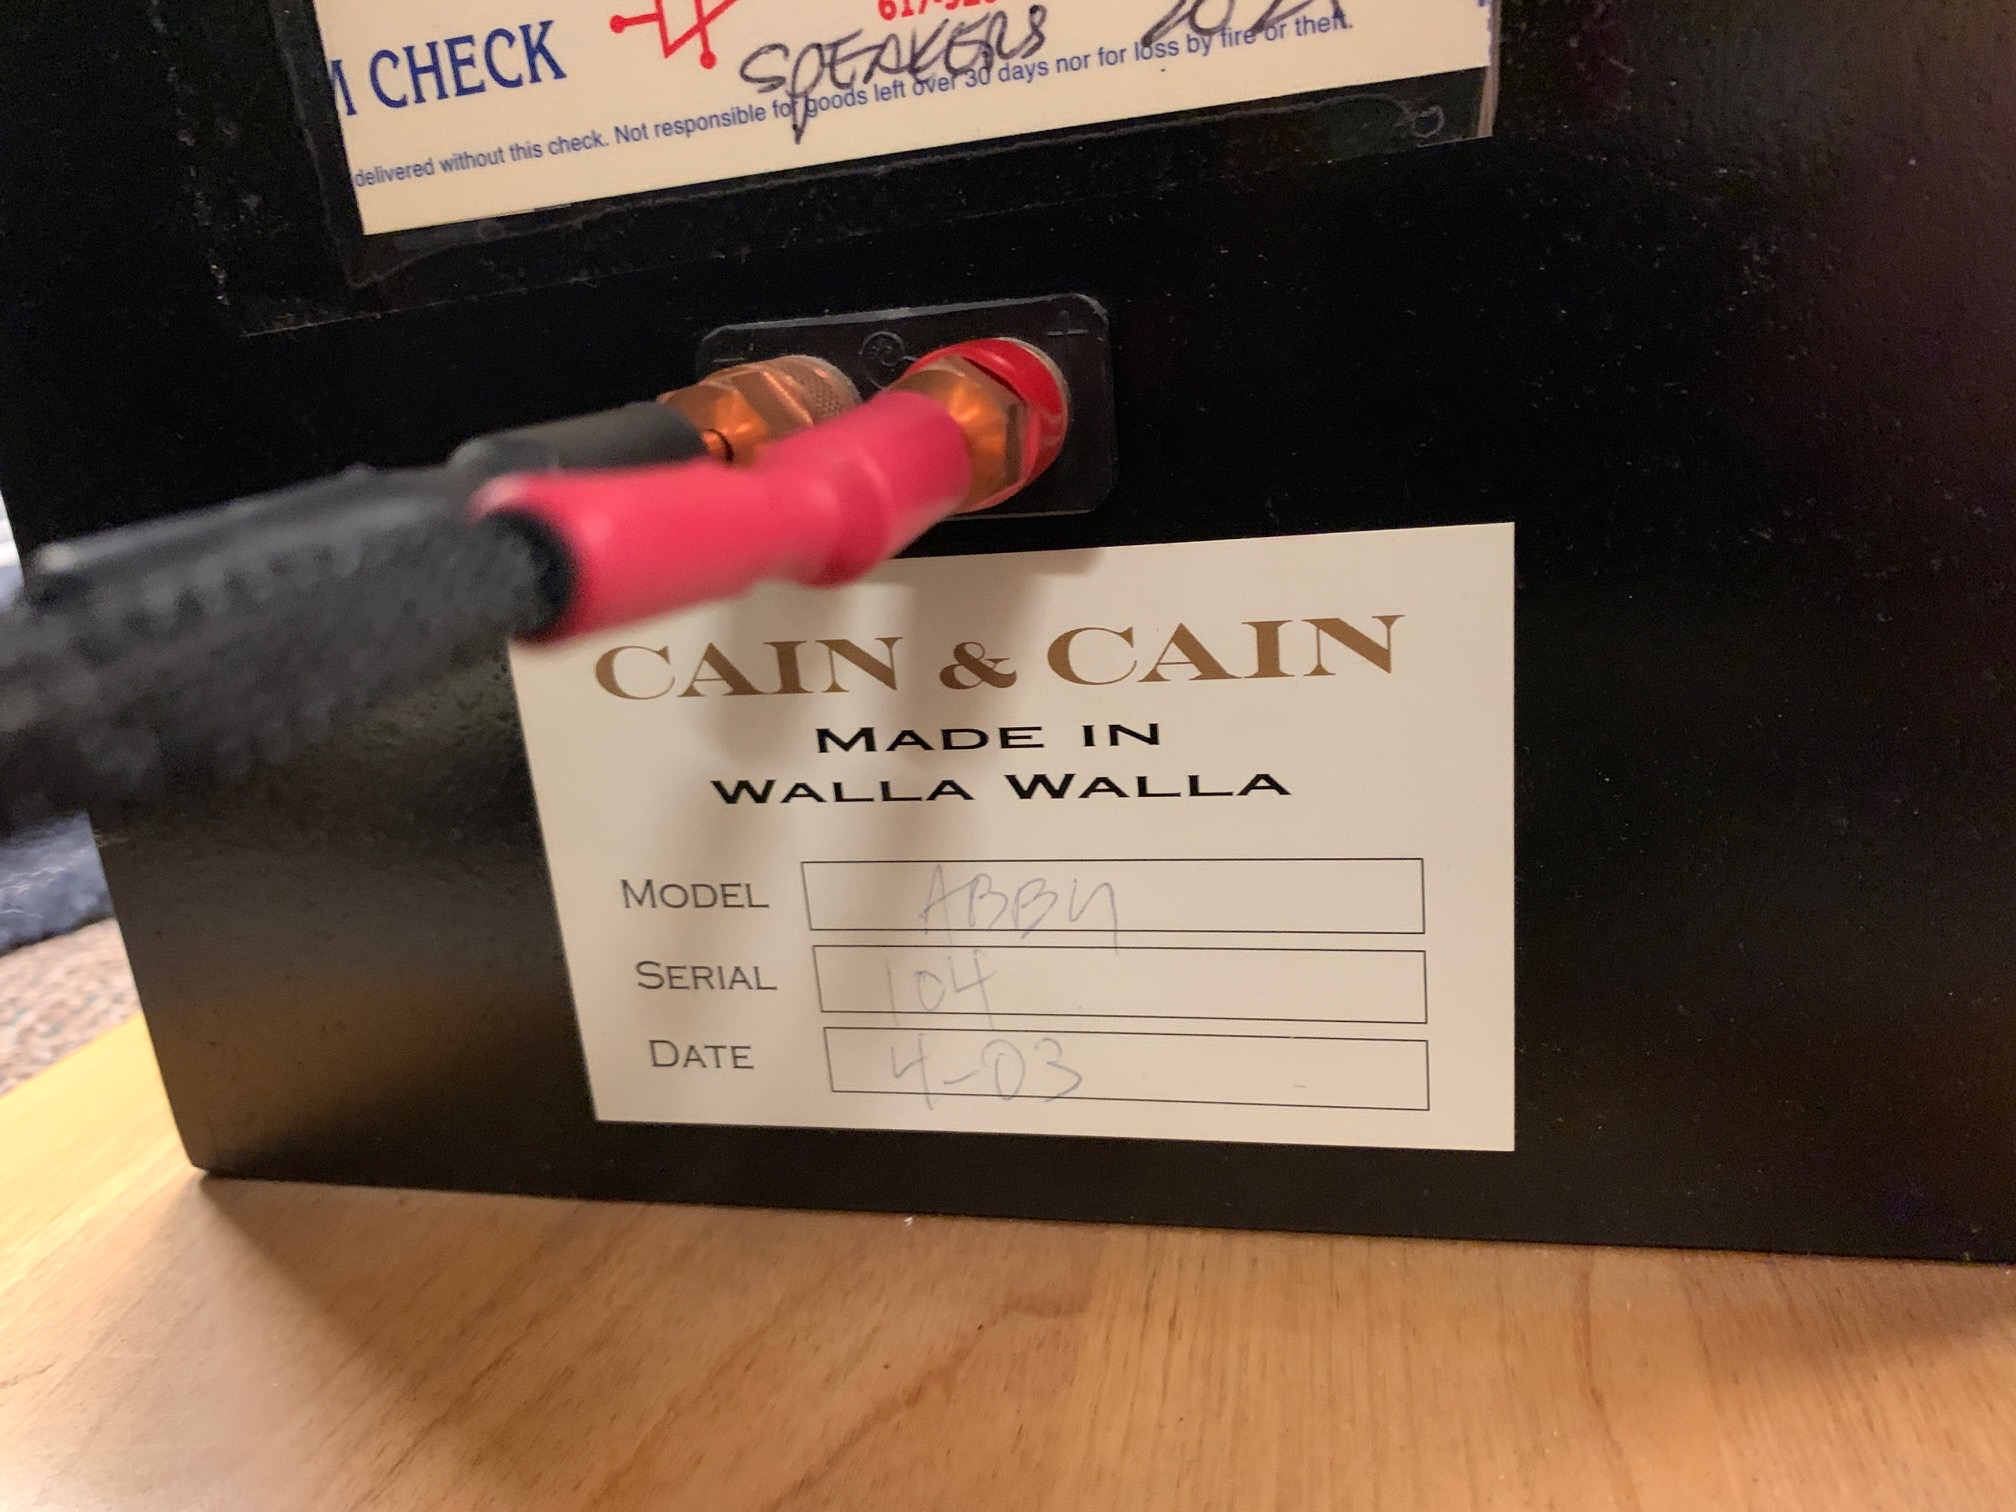 CHECK
SPEAKERS
delivered without this check. Not responsible for goods left over 30 days nor for loss by fire or theft.
- +
CAIN & CAIN
MADE IN
WALLA WALLA
MODEL ABBY
SERIAL 104
DATE 4-03